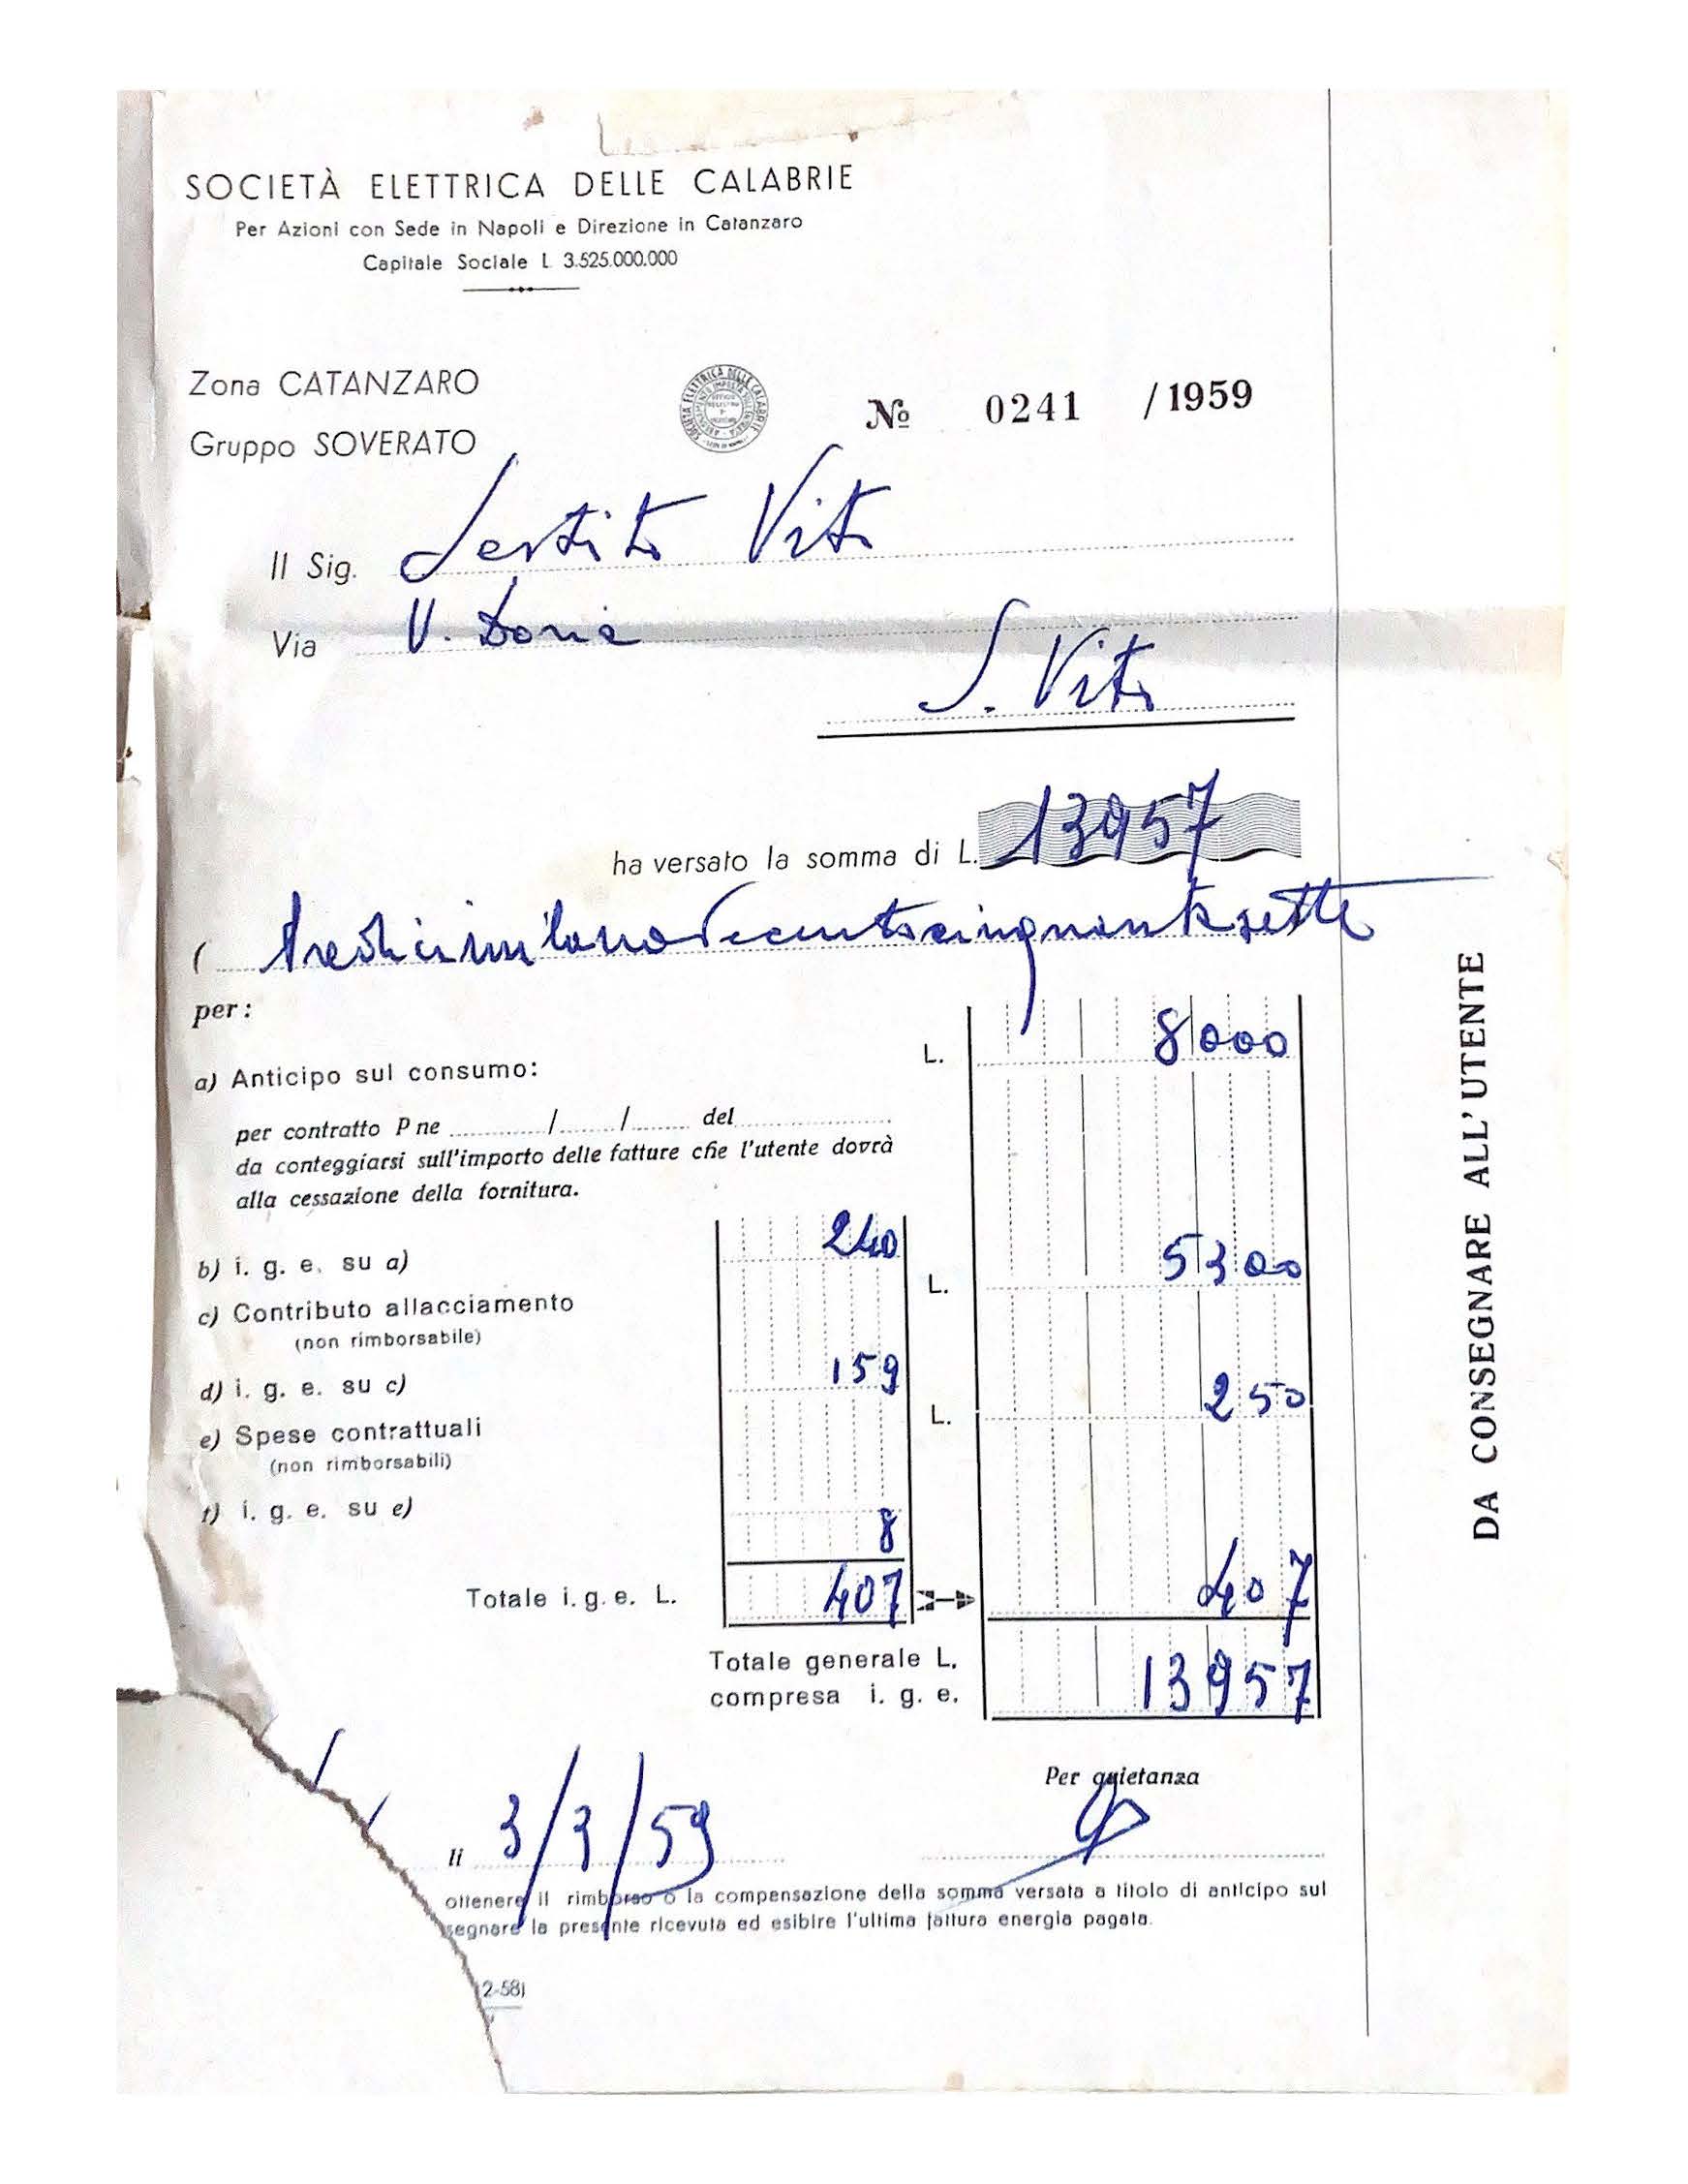 SOCIETÀ ELETTRICA DELLE CALABRIE
Per Azioni con Sede in Napoli e Direzione in Catanzaro
Capitale Sociale L 3.525.000.000
Zona CATANZARO
Gruppo SOVERATO
SOCIETÀ ELETTRICA DELLE CALABRIE
№ 0241 /1959
Il Sig. Sestito Vito
Via V. Doria
S. Vito
ha versato la somma di L. 13957
( tredicimilanovecentocinquantasette
per:
a) Anticipo sul consumo: L. 8000
per contratto P ne ........../......./....... del ..............
da conteggiarsi sull'importo delle fatture che l'utente dovrà
alla cessazione della fornitura.
b) i. g. e. su a) 240
c) Contributo allacciamento L. 5300
(non rimborsabile)
d) i. g. e. su c) 159
e) Spese contrattuali L. 250
(non rimborsabili)
f) i. g. e. su e) 8
Totale i. g. e. L. 407 407
Totale generale L.
compresa i. g. e. 13957
Per quietanza
li 3/3/59
ottenere il rimborso o la compensazione della somma versata a titolo di anticipo sul
segnare la presente ricevuta ed esibire l'ultima fattura energia pagata.
2-58)
DA CONSEGNARE ALL'UTENTE